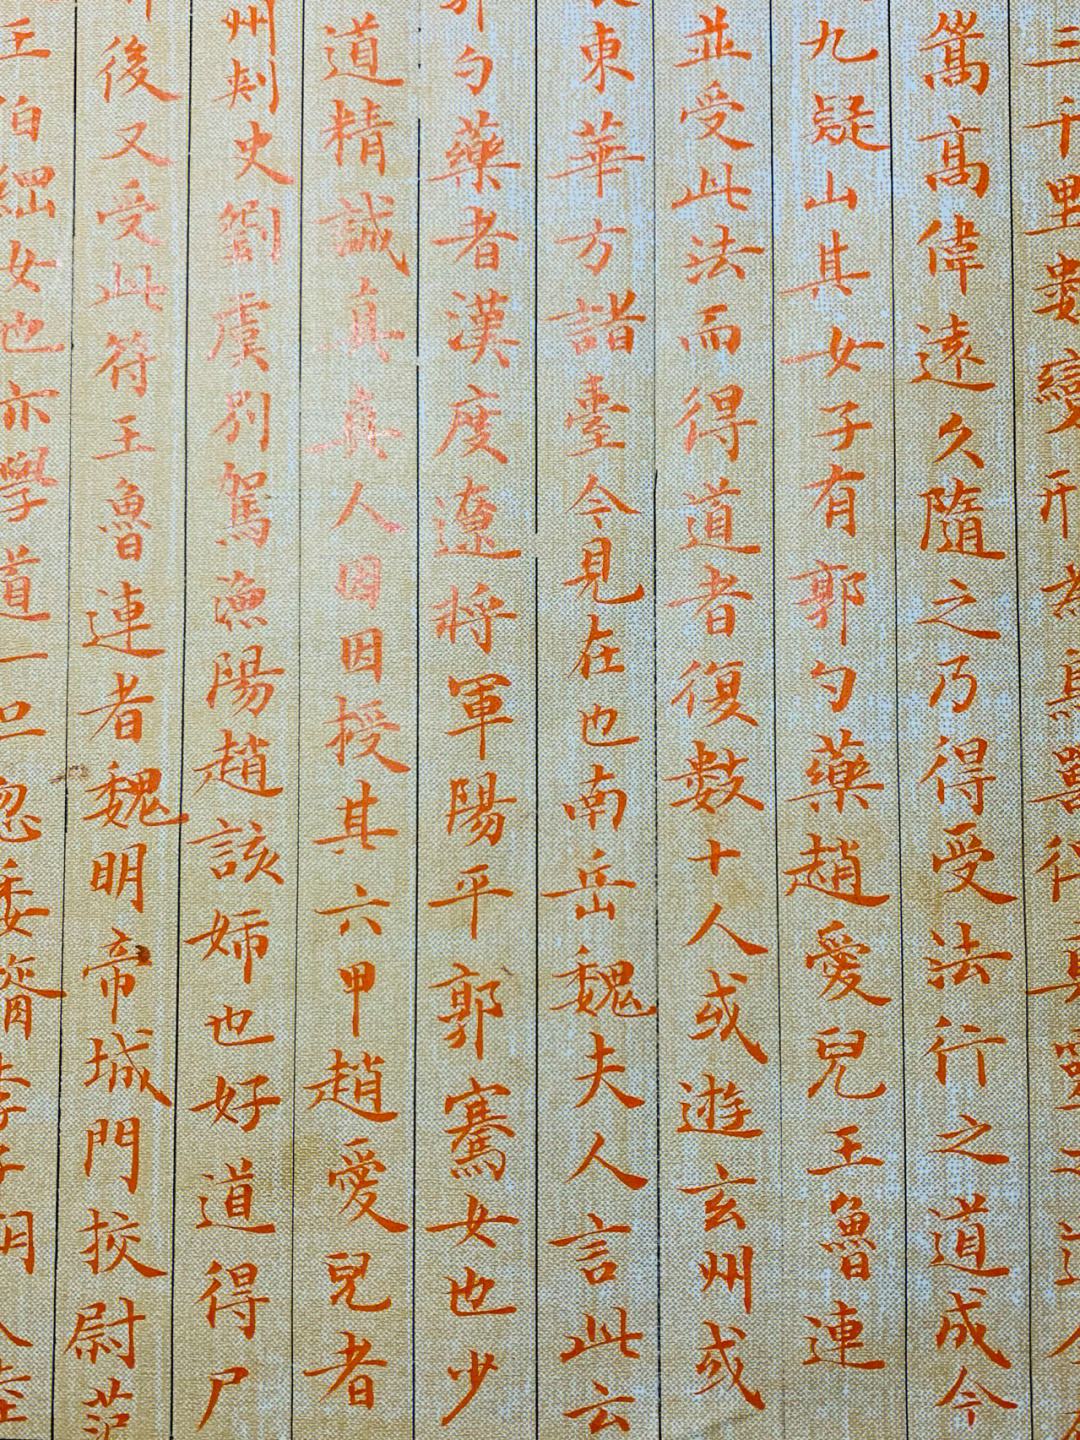 三千里數變形為鳥獸得真靈
嵩高偉遠久隨之乃得受法行之道成今
九疑山其女子有郭勺藥趙愛兒王魯連
並受此法而得道者復數十人或遊玄州或
東華方諸臺今見在也南岳魏夫人言此云
郭勺藥者漢度遼將軍陽平郭騫女也少
道精誠真真人因因授其六甲趙愛兒者
州刾史劉虞別駕漁陽趙該姉也好道得尸
後又受此符王魯連者魏明帝城門挍尉范
王伯綱女也亦學道一旦忽委